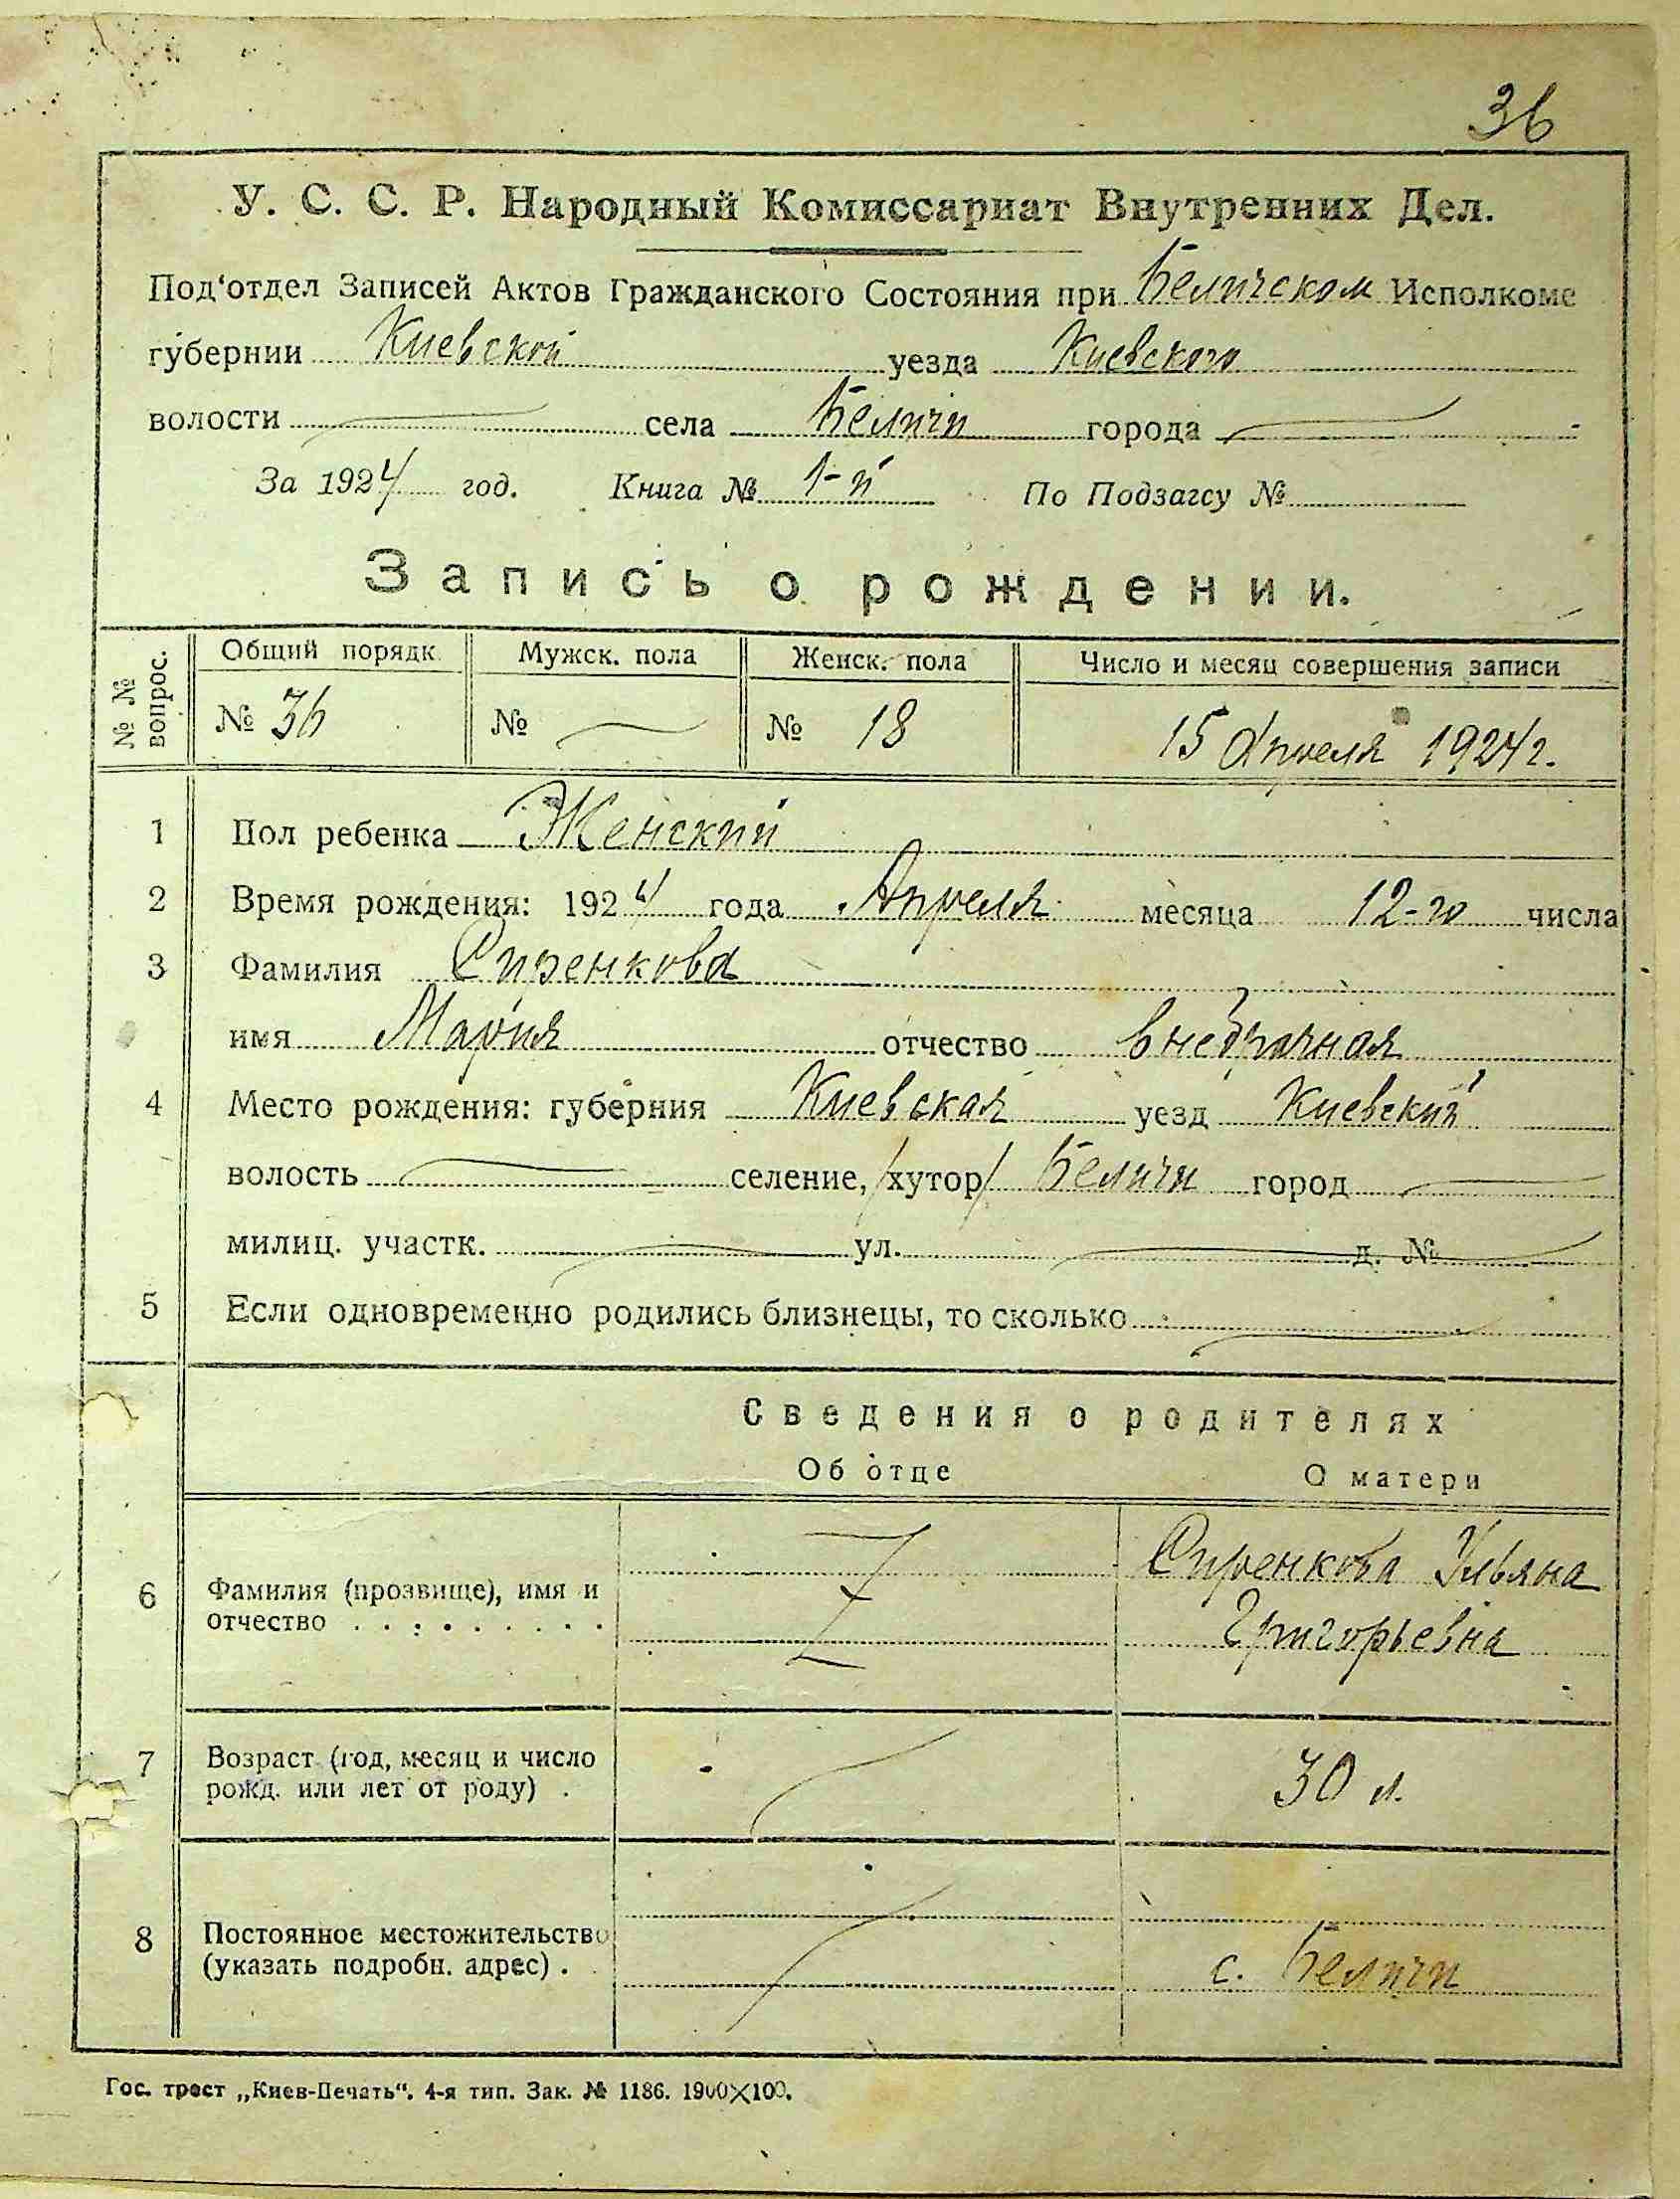 36
У. С. С. Р. Народный Комиссариат Внутренних Дел.
Под‘отдел Записей Актов Гражданского Состояния при Беличском Исполкоме
губернии Киевской уезда Киевского
волости — села Беличи города —
За 1924 год. Книга № 1-й По Подзагсу №
Запись о рождении.
№ № вопрос. Общий порядк. Мужск. пола Женск. пола Число и месяц совершения записи
№ 36 № — № 18 15 Апреля 1924 г.
1 Пол ребенка Женский
2 Время рождения: 1924 года Апреля месяца 12-го числа
3 Фамилия Сиренкова
имя Мария отчество внебрачная
4 Место рождения: губерния Киевская уезд Киевский
волость — селение, /хутор/ Беличи город —
милиц. участк. — ул. — д. №
5 Если одновременно родились близнецы, то сколько —
Сведения о родителях
Об отце О матери
6 Фамилия (прозвище), имя и отчество Сиренкова Ульяна
Григорьевна
7 Возраст (год, месяц и число
рожд. или лет от роду) . 30 л.
8 Постоянное местожительство
(указать подробн. адрес) . с. Беличи
Гос. трест „Киев-Печать“. 4-я тип. Зак. № 1186. 1900×100.